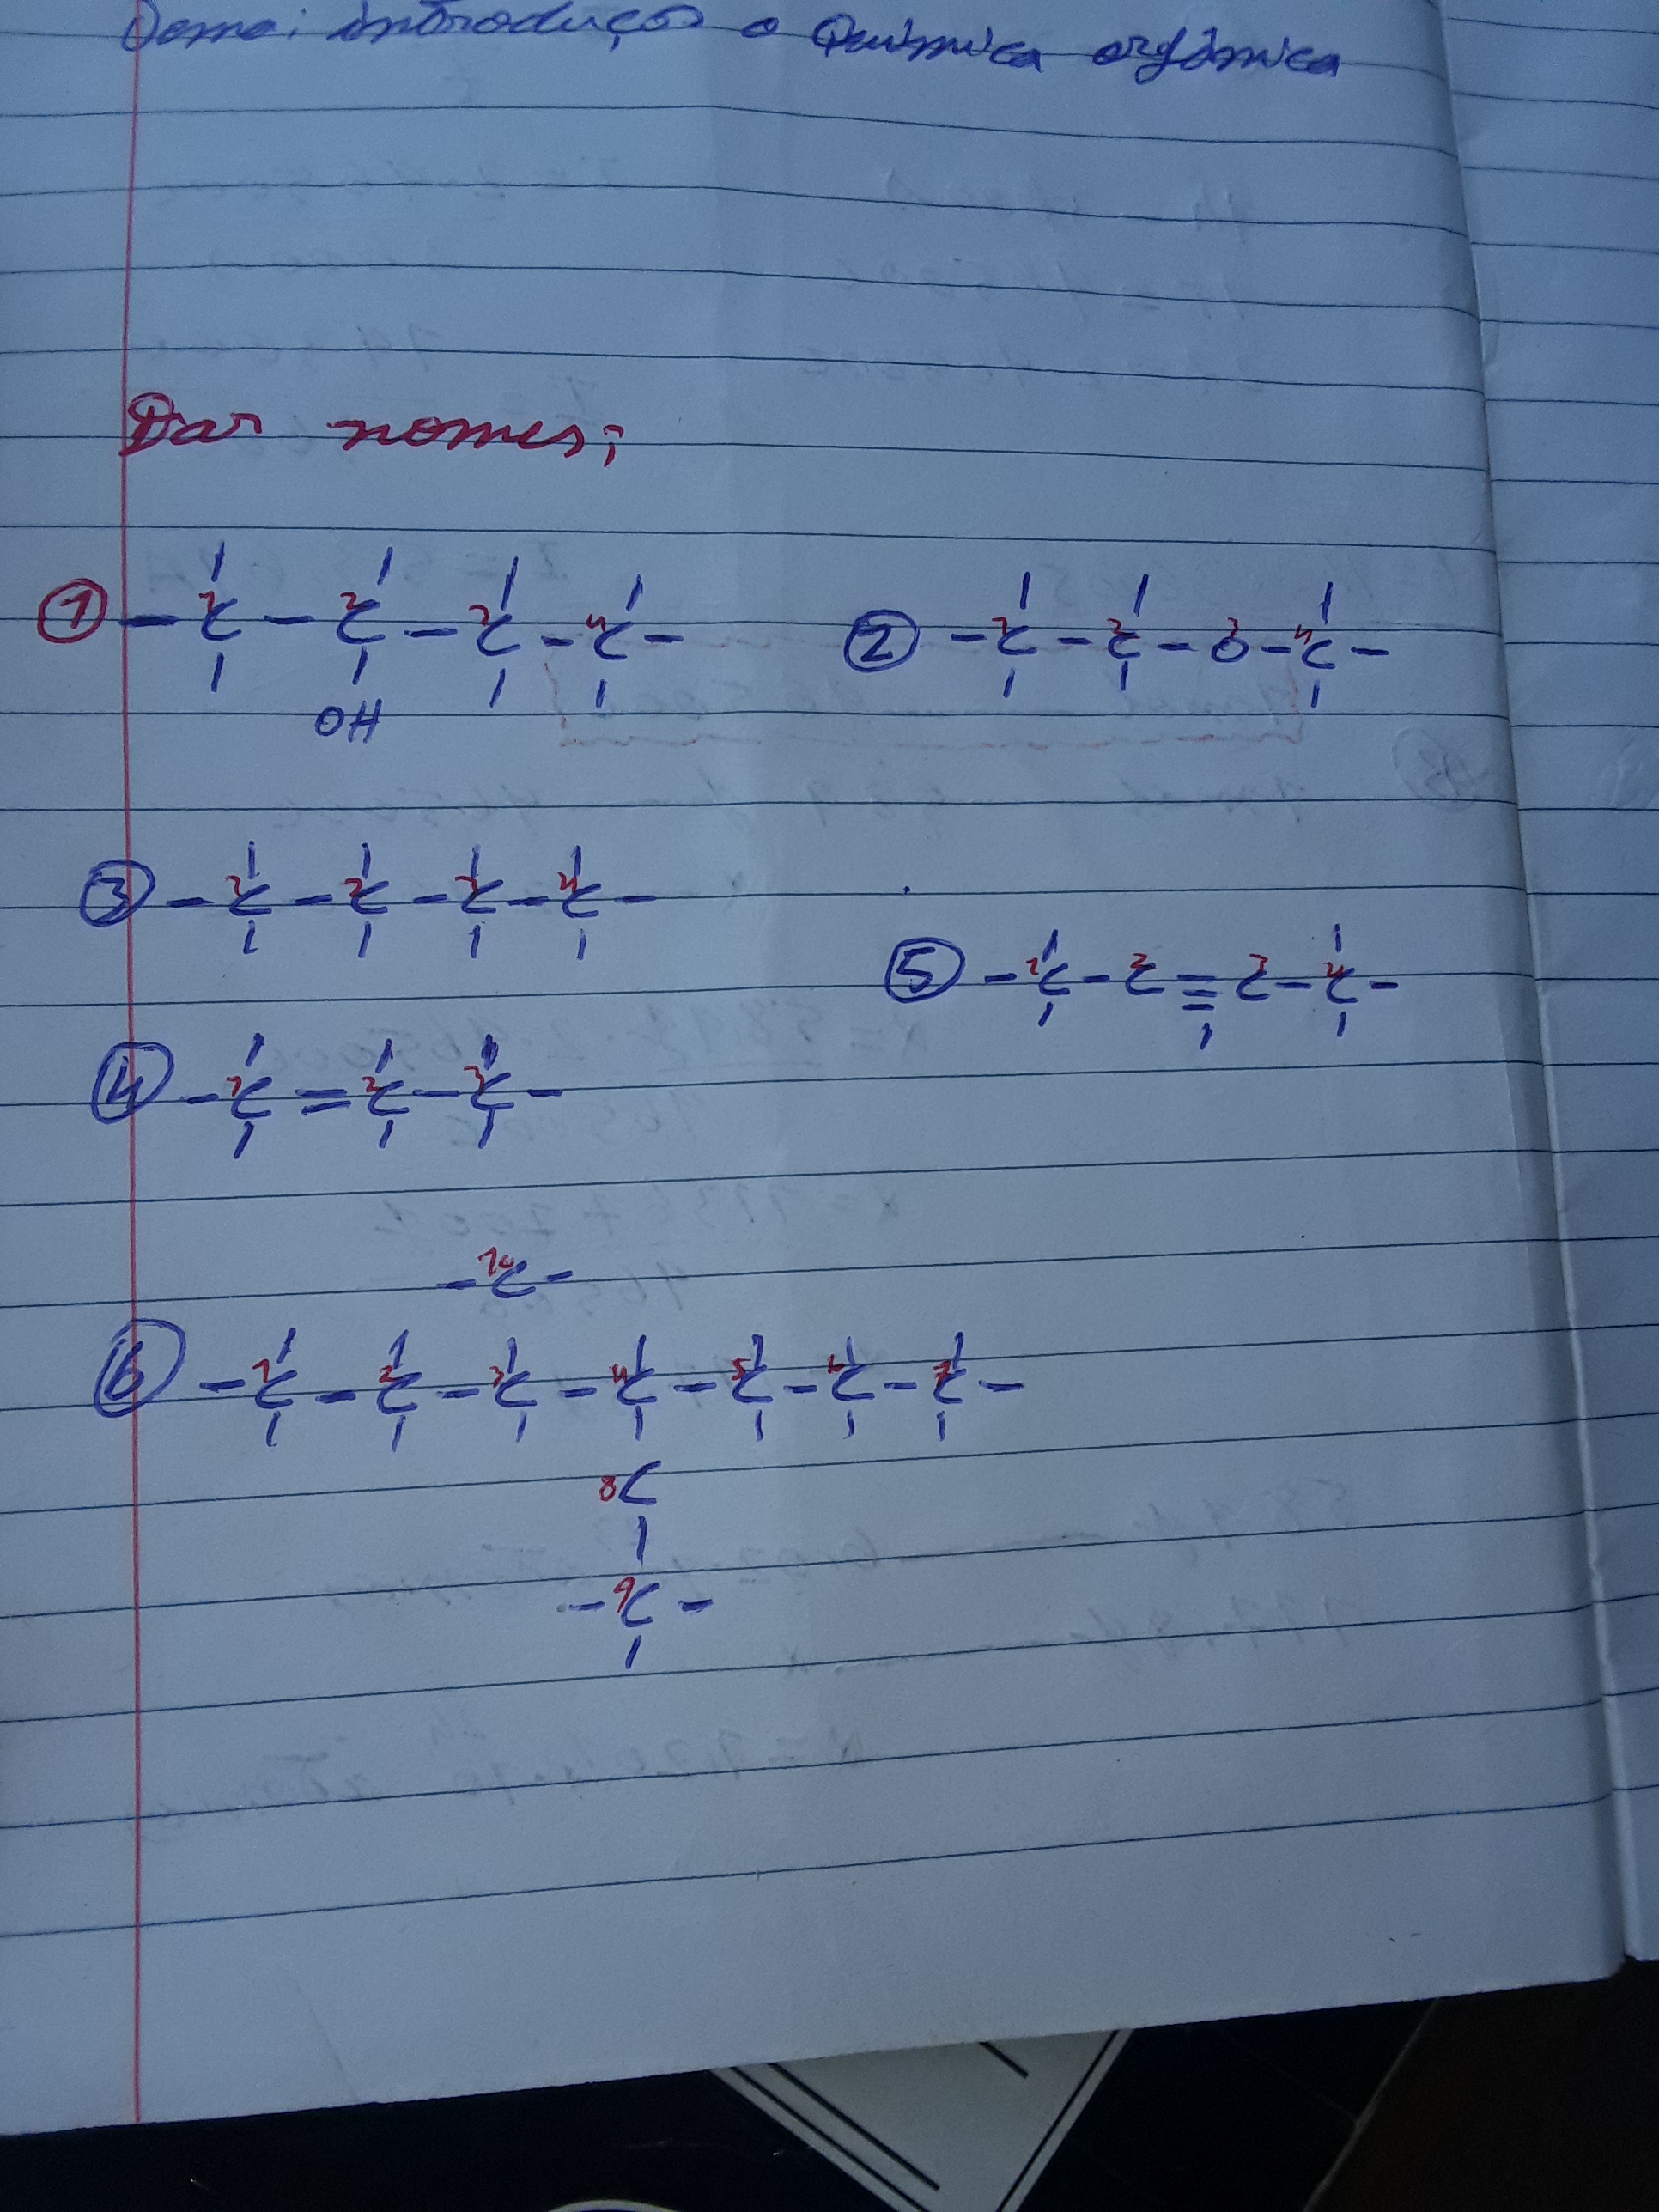 Tema: introdução a Química orgânica
Dar nomes;
① - C¹ - C² - C³ - C⁴ -
OH
② - C¹ - C² - O³ - C⁴ -
③ - C¹ - C² - C³ - C⁴ -
⑤ - C¹ - C² ≡ C³ - C⁴ -
④ - C¹ = C² - C³ -
- C¹⁰ -
⑥ - C¹ - C² - C³ - C⁴ - C⁵ - C⁶ - C⁷ -
8C
- 9C -